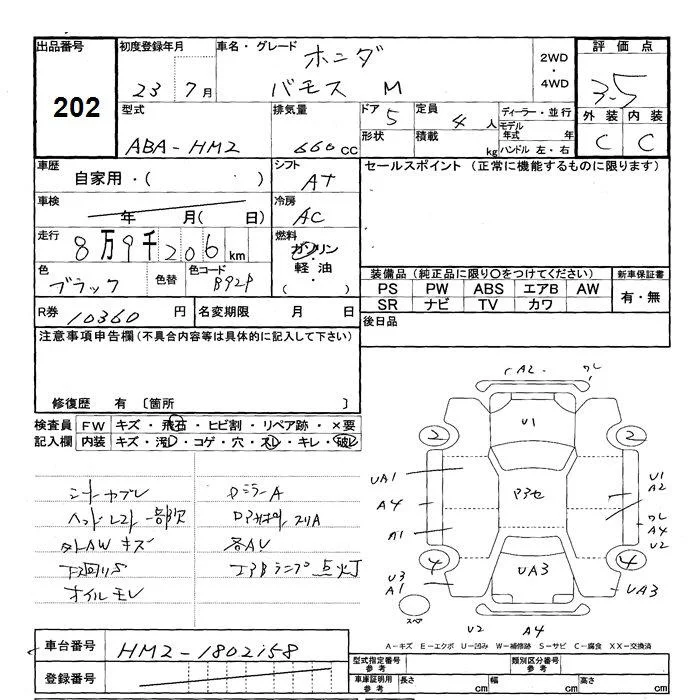 出品番号 202
初度登録年月 23 7月
車名・グレード ホンダ
バモス M
2WD
・
4WD
評価点 3.5
外装 内装
C C
型式 ABA-HM2
排気量 660cc
ドア 5
形状
定員 4人
積載 kg
ディーラー・並行
モデル年式 年
ハンドル 左・右
車歴 自家用・( )
シフト AT
セールスポイント (正常に機能するものに限ります)
車検 年 月( 日)
冷房 AC
走行 8万9千206km
燃料 ガソリン
・
軽油
・
( )
色 ブラック
色替
色コード B92P
装備品(純正品に限り〇をつけてください)
PS PW ABS エアB AW
SR ナビ TV カワ
新車保証書
有・無
R券 10360円
名変期限 月 日
後日品
注意事項申告欄(不具合内容等は具体的に記入して下さい)
修復歴 有 〔箇所 〕
検査員記入欄
FW キズ・飛石・ヒビ割・リペア跡・×要
内装 キズ・汚レ・コゲ・穴・スレ・キレ・破レ
シートカブレ
DミラーA
ヘッドレスト一部欠
スリA
タルAWキズ
各AU
下廻りS
エアBランプ点灯
オイルモレ
A2 ワレ
U1
2 2
UA1
A4
A1
U1
A2
ワレ
A4
U2
4 4
UA3
U3
A1
UA3
スペア
U2 A4
A-キズ E-エクボ U-凹み W-補修跡 S-サビ C-腐食 XX-交換済
車台番号 HM2-1802158
登録番号
型式指定番号 参考
類別区分番号 参考
車庫証明用 参考
長さ cm
幅 cm
高さ cm